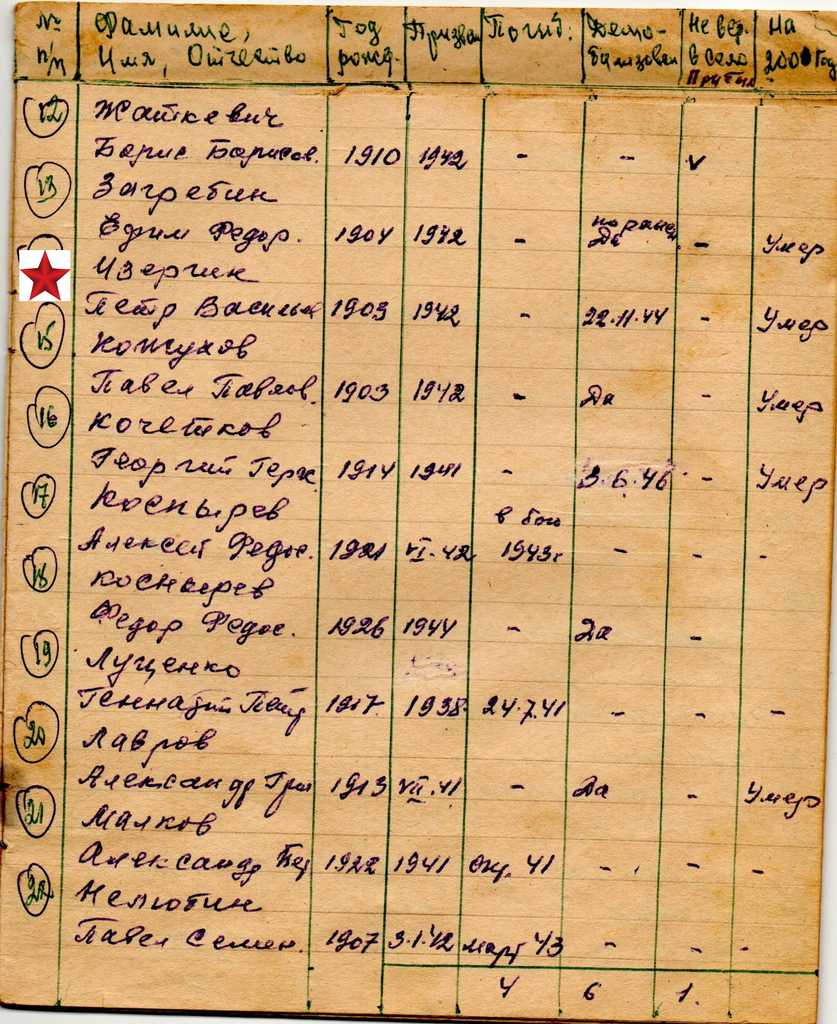 № Фамилие, Год Призван Погиб. Демо- Не вер. На
п/п Имя, Отчество рожд. билизован в село 2000 год
Прибыл
12 Жаткевич
Борис Борисов. 1910 1942 - - v
13 Загребин
Ефим Федор. 1904 1942 - по ранен. Да - Умер
Изергин
Петр Василье 1903 1942 - 22.11.44 - Умер
15 Кожухов
Павел Павлов. 1903 1942 - Да - Умер
16 Кочетков
Георгий Герас. 1914 1941 - 3.6.46 - Умер
17 Коснырев в бою
Алексей Федос. 1921 VI.42 1943г - - -
18 Коснырев
Федор Федос. 1926 1944 - Да -
19 Лущенко
Геннадий Петр 1917. 1938. 24.7.41 - - -
20 Лавров
Александр Григ 1913 VII.41 - Да - Умер
21 Малков
Александр Пет 1922 1941 Окт. 41 - - -
22 Нелютин
Павел Семен. 1907 3.1.42 март 43 - - -
4 6 1.